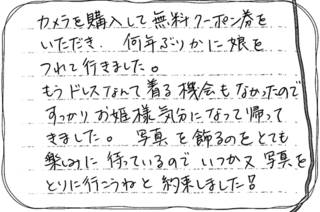 カメラを購入して無料クーポン券を
いただき、何年ぶりかに娘を
つれて行きました。
もうドレスなんて着る機会もなかったので
すっかりお姫様気分になって帰って
きました。写真を飾るのをとても
楽しみに待っているのでいつか又写真を
とりに行こうねと約束しました!!